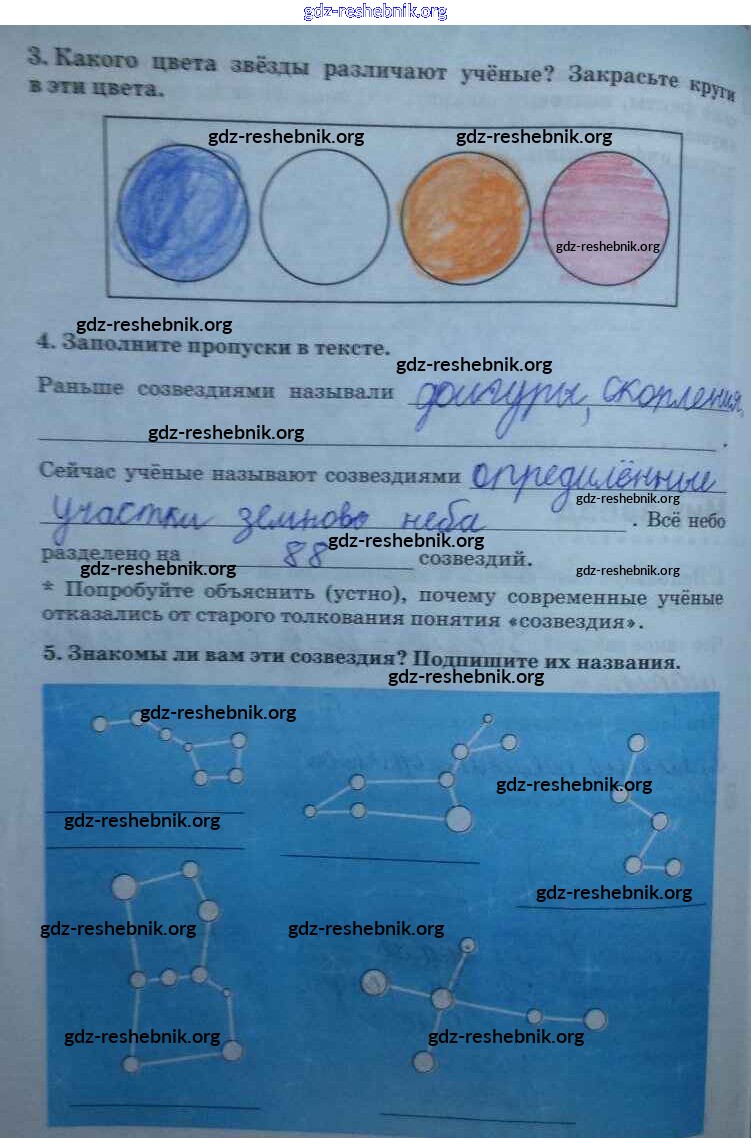 gdz-reshebnik.org
3. Какого цвета звёзды различают учёные? Закрасьте круги
в эти цвета.
gdz-reshebnik.org gdz-reshebnik.org
gdz-reshebnik.org
gdz-reshebnik.org
4. Заполните пропуски в тексте.
gdz-reshebnik.org
Раньше созвездиями называли фигуры, скопления,
gdz-reshebnik.org .
Сейчас учёные называют созвездиями определённые
gdz-reshebnik.org
участки земново неба . Всё небо
gdz-reshebnik.org
разделено на 88 созвездий.
gdz-reshebnik.org gdz-reshebnik.org
* Попробуйте объяснить (устно), почему современные учёные
отказались от старого толкования понятия «созвездия».
5. Знакомы ли вам эти созвездия? Подпишите их названия.
gdz-reshebnik.org
gdz-reshebnik.org
gdz-reshebnik.org
gdz-reshebnik.org
gdz-reshebnik.org
gdz-reshebnik.org gdz-reshebnik.org
gdz-reshebnik.org gdz-reshebnik.org